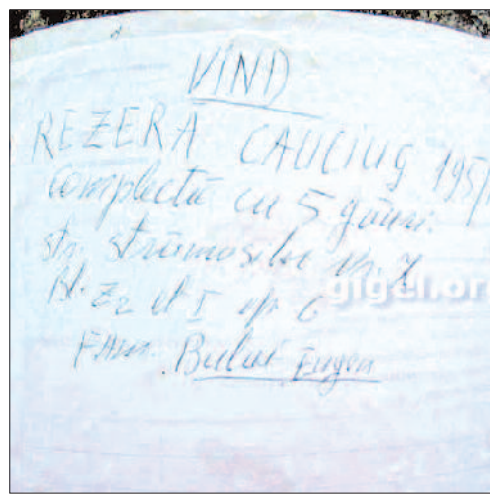 VIND
REZERĂ CAUCIUG 195/
complectă cu 5 găuri.
str. strămoșilor nr. 7
Bl. Z2 et I ap 6
FAM. Eugen
gigel.or